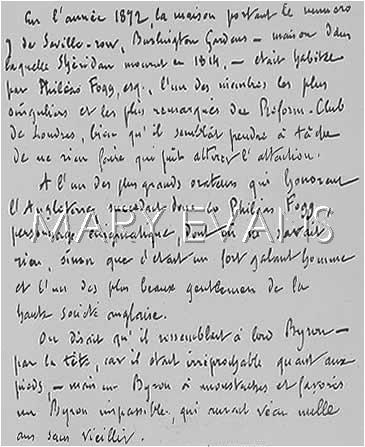 En l'année 1872, la maison portant le numéro
7 de Saville-row, Burlington Gardens – maison dans
laquelle Shéridan mourut en 1814, – était habitée
par Philéas Fogg, esq., l'un des membres les plus
singuliers et les plus remarqués du Réform-Club
de Londres, bien qu'il semblât prendre à tâche
de ne rien faire qui pût attirer l'attention.
A l'un des plus grands orateurs qui honorent
l'Angleterre, succédait donc ce Philéas Fogg,
MARY EVANS
personnage énigmatique, dont on ne savait
rien, sinon que c'était un fort galant homme
et l'un des plus beaux gentlemen de la
haute société anglaise.
On disait qu'il ressemblait à lord Byron –
par la tête, car il était irréprochable quant aux
pieds, – mais un Byron à moustaches et favoris
un Byron impassible, qui aurait vécu mille
ans sans vieillir.